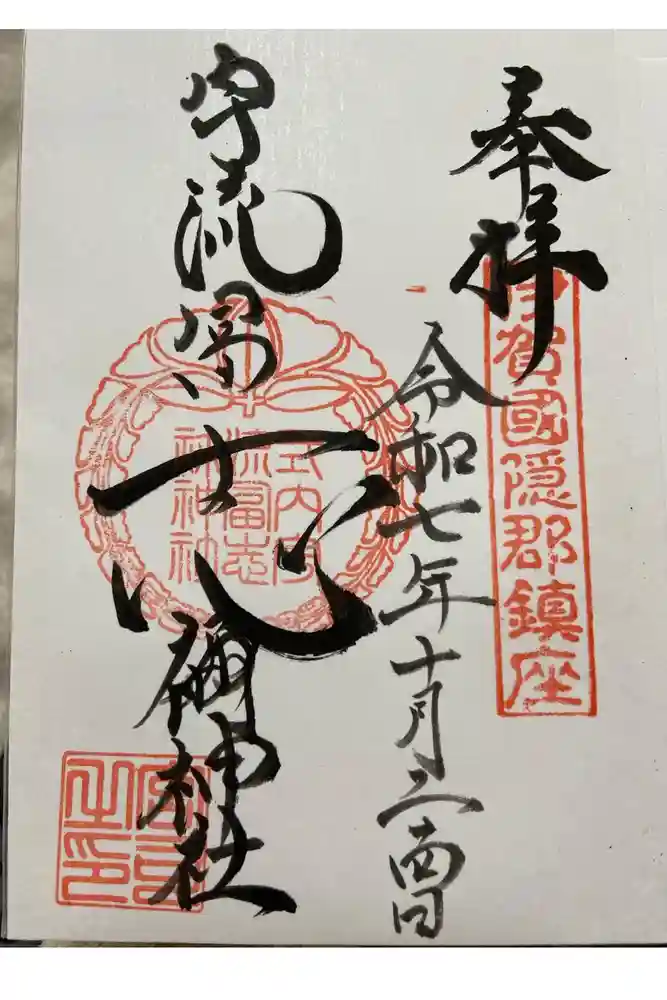 奉拝
伊賀國隠郡鎮座
令和七年十月二十四日
宇流冨志禰神社
式内宇
流冨志
祢神社
宮司
之印